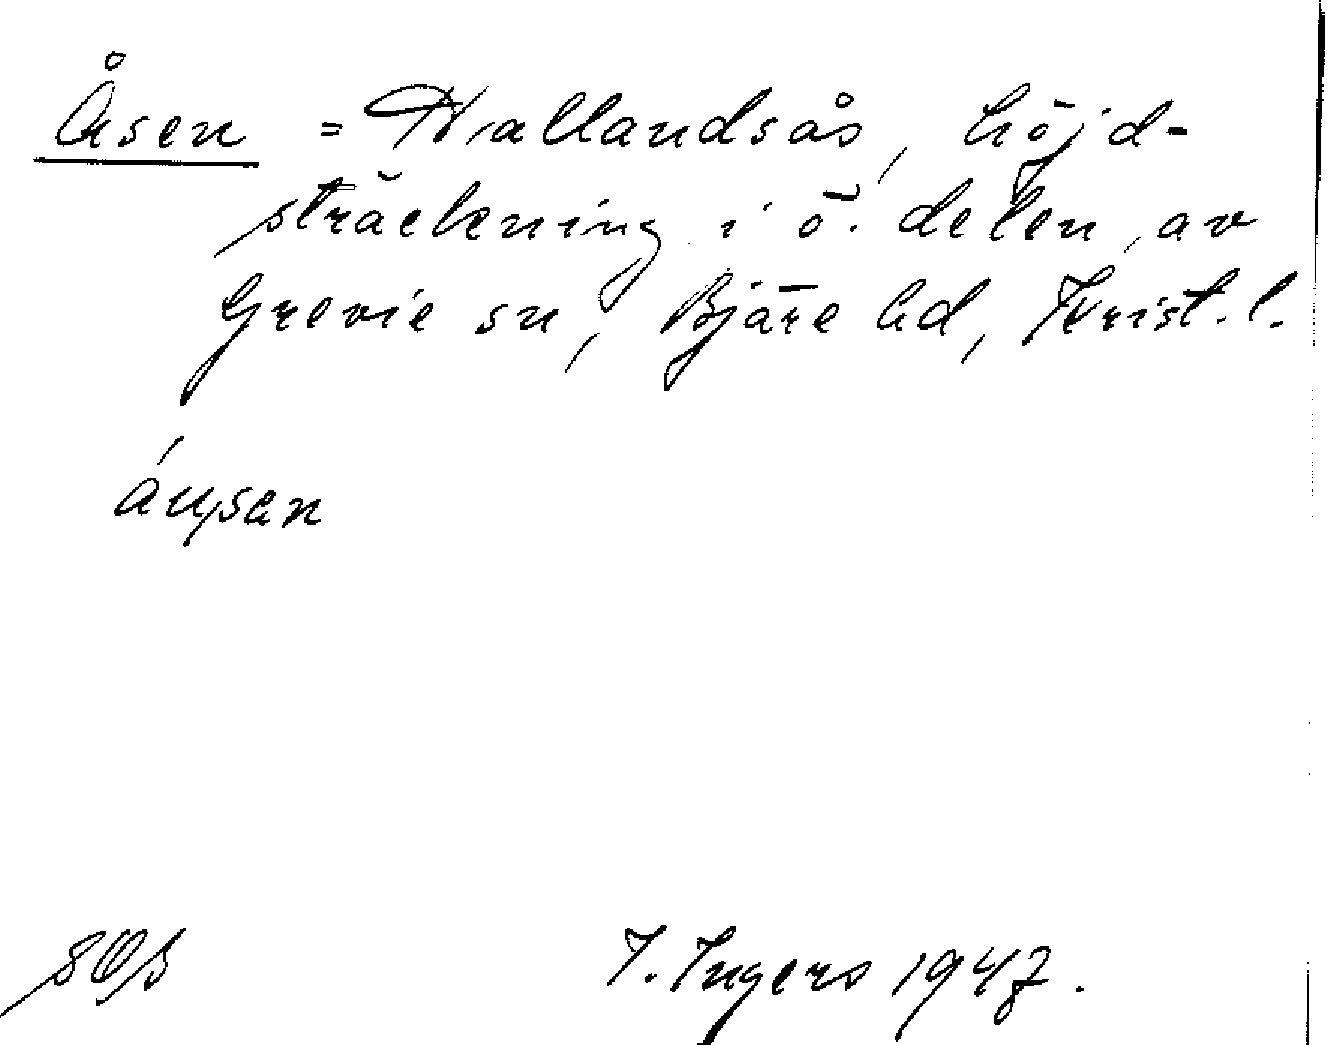 Åsen = Hallandsås, höjd-
sträckning i ö. delen av
Grevie sn, Bjäre hd, Krist. l.
I. Ingers 1947.